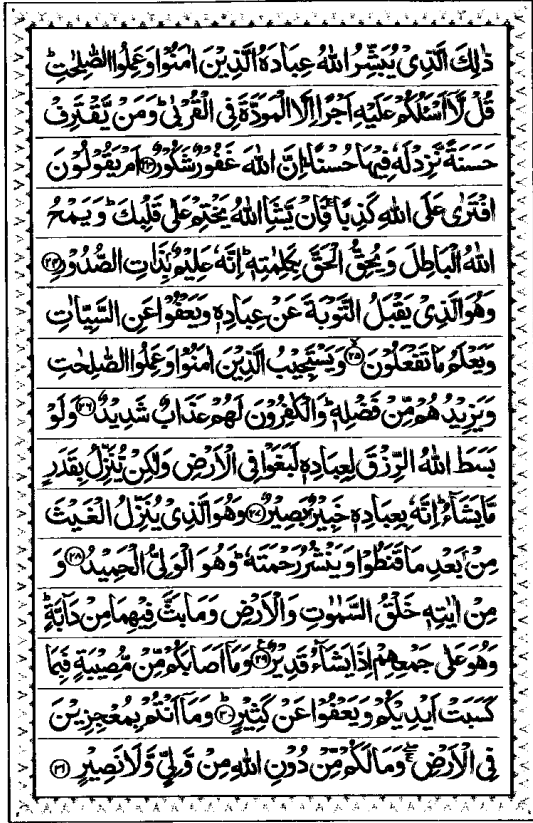 ذٰلِكَ الَّذِیْ یُبَشِّرُ اللهُ عِبَادَهُ الَّذِیْنَ اٰمَنُوْا وَعَمِلُوا الصّٰلِحٰتِ ؕ
قُلْ لَّاۤ اَسْـَٔلُكُمْ عَلَیْهِ اَجْرًا اِلَّا الْمَوَدَّةَ فِی الْقُرْبٰی ؕ وَمَنْ یَّقْتَرِفْ
حَسَنَةً نَّزِدْ لَهٗ فِیْهَا حُسْنًا ؕ اِنَّ اللهَ غَفُوْرٌ شَكُوْرٌ ﴿۲۳﴾ اَمْ یَقُوْلُوْنَ
افْتَرٰی عَلَی اللهِ كَذِبًا ۚ فَاِنْ یَّشَاِ اللهُ یَخْتِمْ عَلٰی قَلْبِكَ ؕ وَیَمْحُ
اللهُ الْبَاطِلَ وَیُحِقُّ الْحَقَّ بِكَلِمٰتِهٖ ؕ اِنَّهٗ عَلِیْمٌۢ بِذَاتِ الصُّدُوْرِ ﴿۲۴﴾
وَهُوَ الَّذِیْ یَقْبَلُ التَّوْبَةَ عَنْ عِبَادِهٖ وَیَعْفُوْا عَنِ السَّیِّاٰتِ
وَیَعْلَمُ مَا تَفْعَلُوْنَ ﴿۲۵﴾ وَیَسْتَجِیْبُ الَّذِیْنَ اٰمَنُوْا وَعَمِلُوا الصّٰلِحٰتِ
وَیَزِیْدُهُمْ مِّنْ فَضْلِهٖ ؕ وَالْكٰفِرُوْنَ لَهُمْ عَذَابٌ شَدِیْدٌ ﴿۲۶﴾ وَلَوْ
بَسَطَ اللهُ الرِّزْقَ لِعِبَادِهٖ لَبَغَوْا فِی الْاَرْضِ وَلٰكِنْ یُّنَزِّلُ بِقَدَرٍ
مَّا یَشَآءُ ؕ اِنَّهٗ بِعِبَادِهٖ خَبِیْرٌۢ بَصِیْرٌ ﴿۲۷﴾ وَهُوَ الَّذِیْ یُنَزِّلُ الْغَیْثَ
مِنْۢ بَعْدِ مَا قَنَطُوْا وَیَنْشُرُ رَحْمَتَهٗ ؕ وَهُوَ الْوَلِیُّ الْحَمِیْدُ ﴿۲۸﴾ وَ
مِنْ اٰیٰتِهٖ خَلْقُ السَّمٰوٰتِ وَالْاَرْضِ وَمَا بَثَّ فِیْهِمَا مِنْ دَآبَّةٍ ؕ
وَهُوَ عَلٰی جَمْعِهِمْ اِذَا یَشَآءُ قَدِیْرٌ ﴿۲۹﴾ وَمَاۤ اَصَابَكُمْ مِّنْ مُّصِیْبَةٍ فَبِمَا
كَسَبَتْ اَیْدِیْكُمْ وَیَعْفُوْا عَنْ كَثِیْرٍ ﴿۳۰﴾ وَمَاۤ اَنْتُمْ بِمُعْجِزِیْنَ
فِی الْاَرْضِ ۖۚ وَمَا لَكُمْ مِّنْ دُوْنِ اللهِ مِنْ وَّلِیٍّ وَّلَا نَصِیْرٍ ﴿۳۱﴾